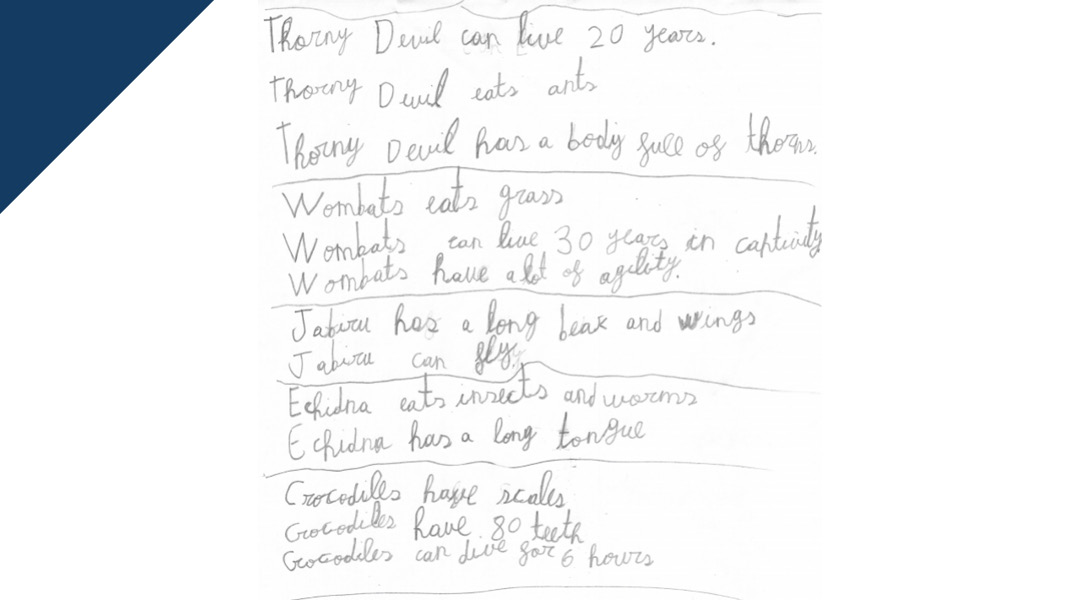 Thorny Devil can live 20 years.
Thorny Devil eats ants
Thorny Devil has a body full of thorns.
Wombats eats grass
Wombats can live 30 years in captivity
Wombats have a lot of agility.
Jabiru has a long beak and wings
Jabiru can fly.
Echidna eats insects and worms
Echidna has a long tongue
Crocodiles have scales
Crocodiles have 80 teeth
Crocodiles can dive for 6 hours